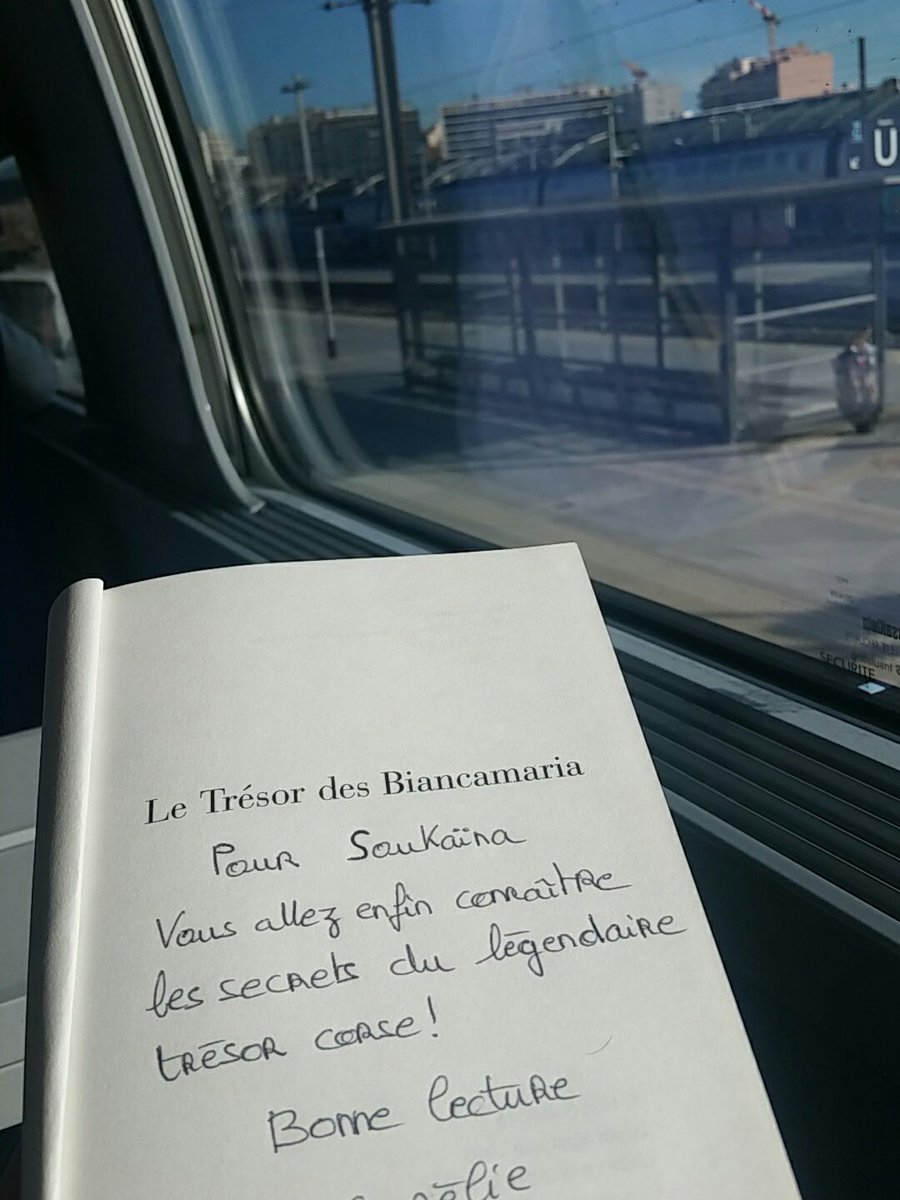 U
SECURITE
Le Trésor des Biancamaria
Pour Soukaïna
Vous allez enfin connaître
les secrets du légendaire
trésor corse!
Bonne lecture
élie